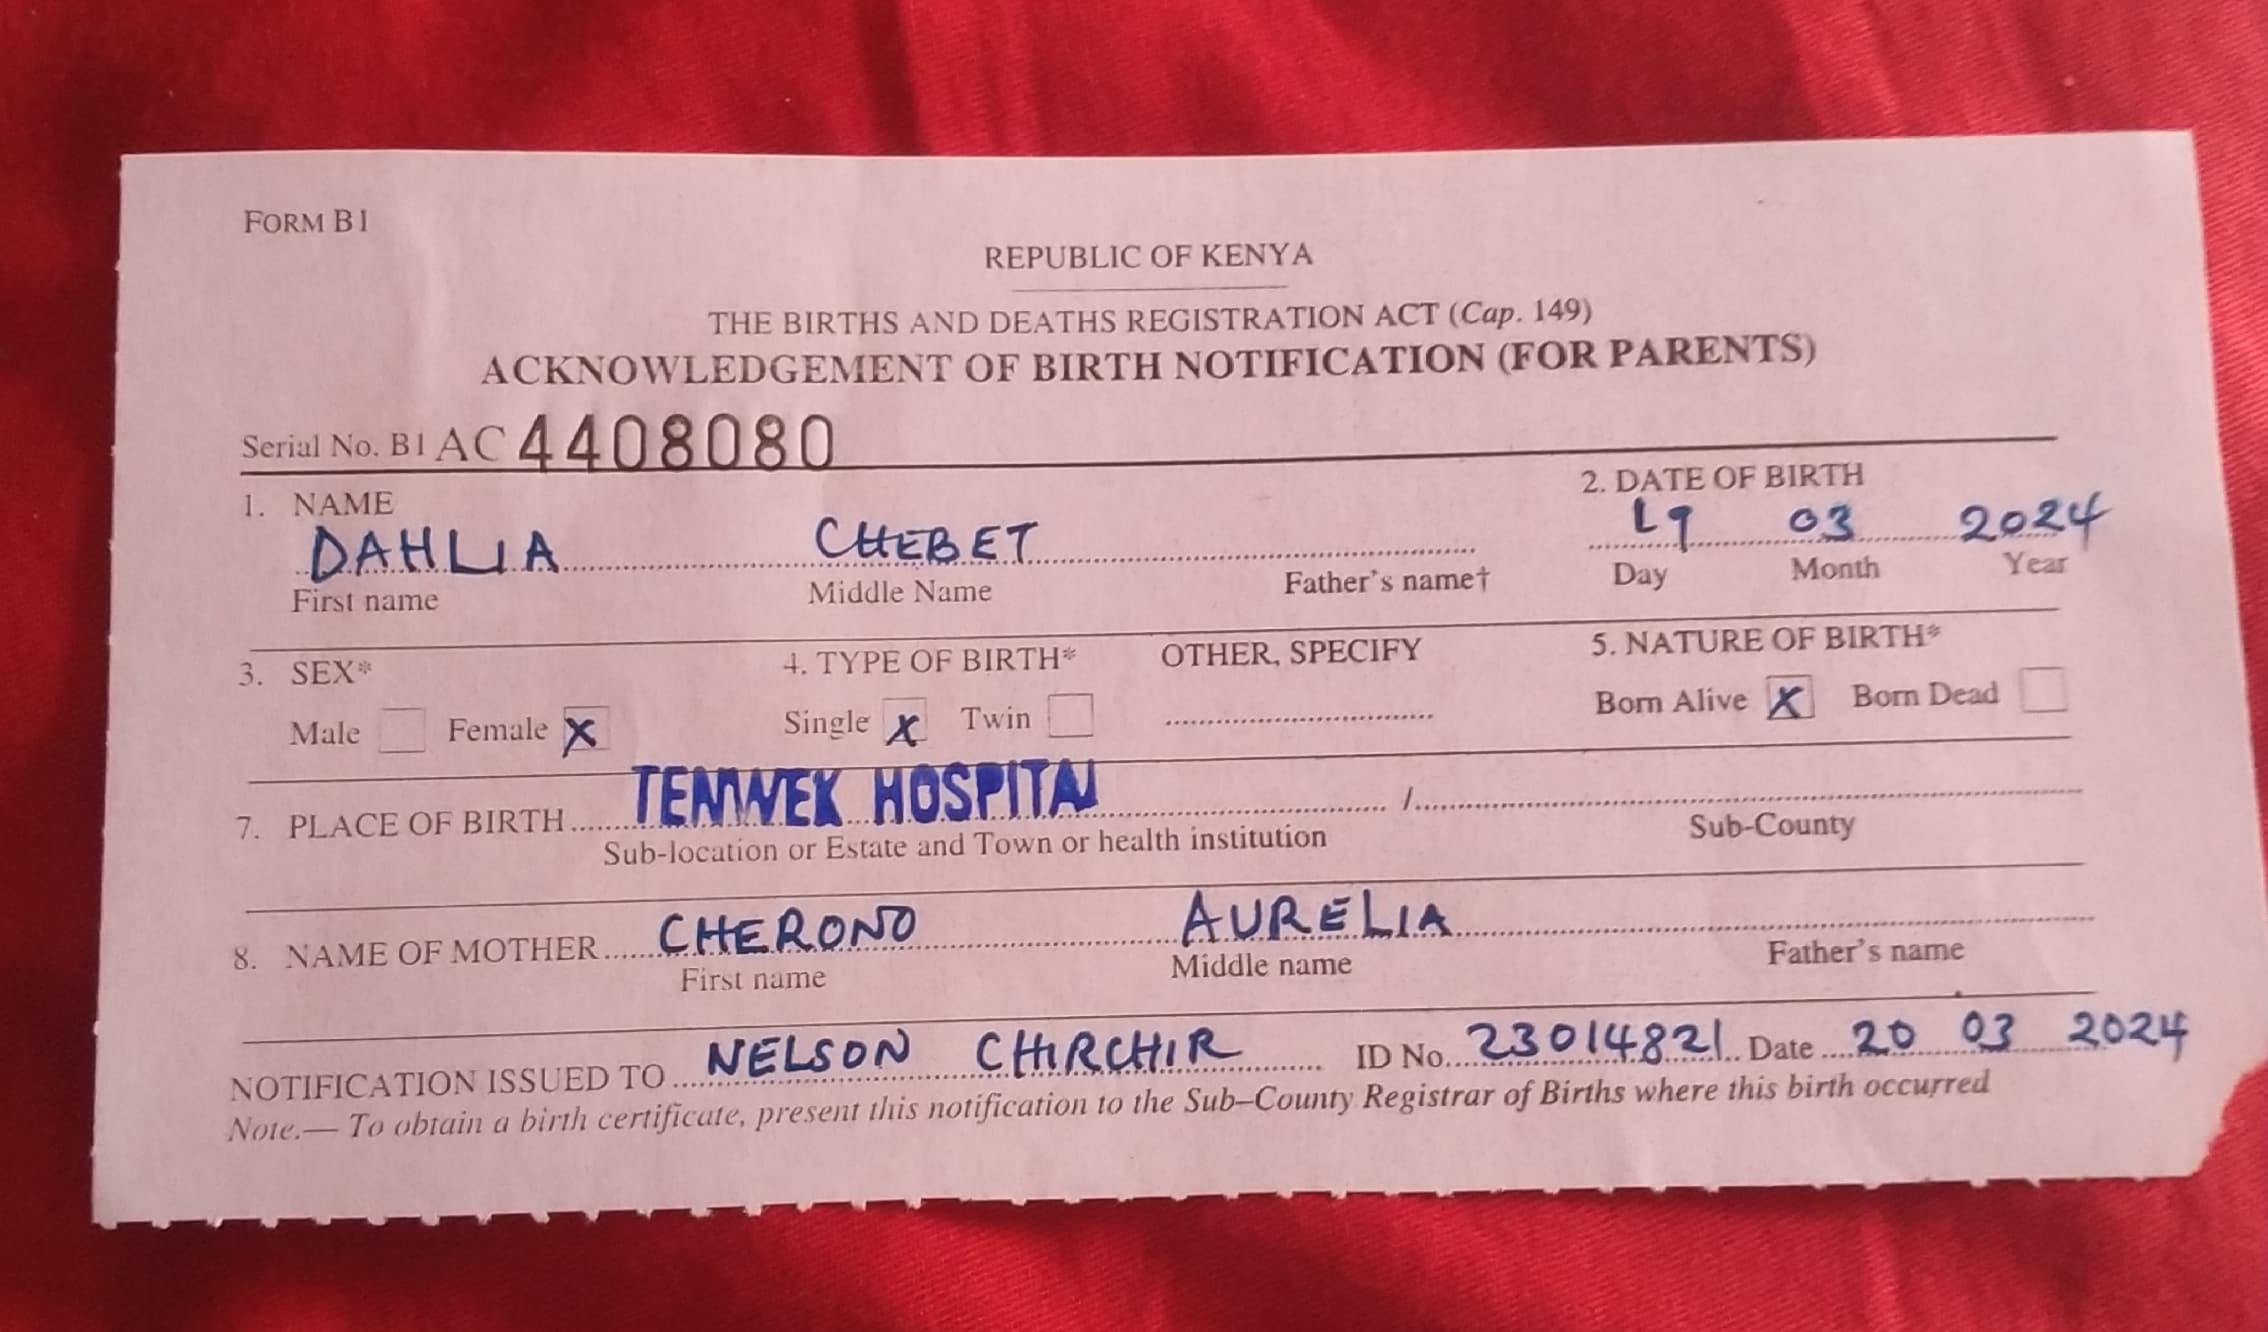 FORM B1
REPUBLIC OF KENYA
THE BIRTHS AND DEATHS REGISTRATION ACT (Cap. 149)
ACKNOWLEDGEMENT OF BIRTH NOTIFICATION (FOR PARENTS)
Serial No. B1 AC 4408080
1. NAME 2. DATE OF BIRTH
DAHLIA CHEBET 19 03 2024
First name Middle Name Father's name† Day Month Year
3. SEX* 4. TYPE OF BIRTH* OTHER, SPECIFY 5. NATURE OF BIRTH*
Male Female X Single X Twin Born Alive X Born Dead
7. PLACE OF BIRTH TENWEK HOSPITAL /
Sub-location or Estate and Town or health institution Sub-County
8. NAME OF MOTHER CHERONO AURELIA
First name Middle name Father's name
NOTIFICATION ISSUED TO NELSON CHIRCHIR ID No. 23014821 Date 20 03 2024
Note.— To obtain a birth certificate, present this notification to the Sub–County Registrar of Births where this birth occurred